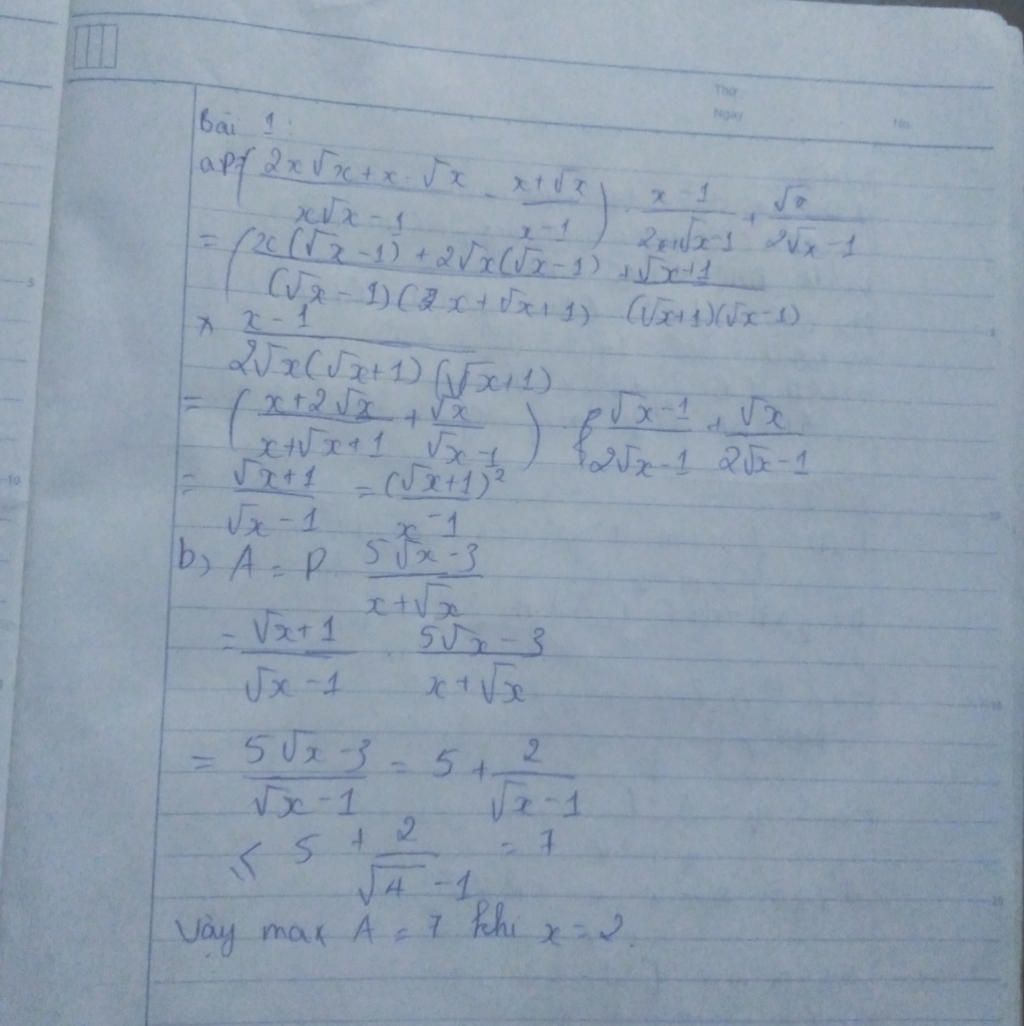 Thứ
Ngày No.
Bài 1:
a, P = ( (2x√x + x - √x)/(x√x - 1) - (x + √x)/(x - 1) ) . (x - 1)/(2x + √x - 1) + √x/(2√x - 1)
= ( (x(√x - 1) + 2√x(√x - 1))/((√x - 1)(2x + √x + 1)) + (√x + 1)/((√x + 1)(√x - 1))
× (x - 1)/(2√x(√x + 1)(√x + 1))
= ( (x + 2√x)/(x + √x + 1) + √x/(√x - 1) ) (√x - 1)/(2√x - 1) + √x/(2√x - 1)
= (√x + 1)/(√x - 1) = (√x + 1)²/(x - 1)
b, A = P (5√x - 3)/(x + √x)
= (√x + 1)/(√x - 1) . (5√x - 3)/(x + √x)
= (5√x - 3)/(√x - 1) = 5 + 2/(√x - 1)
≤ 5 + 2/(√4 - 1) = 7
Vậy max A = 7 khi x = 2.